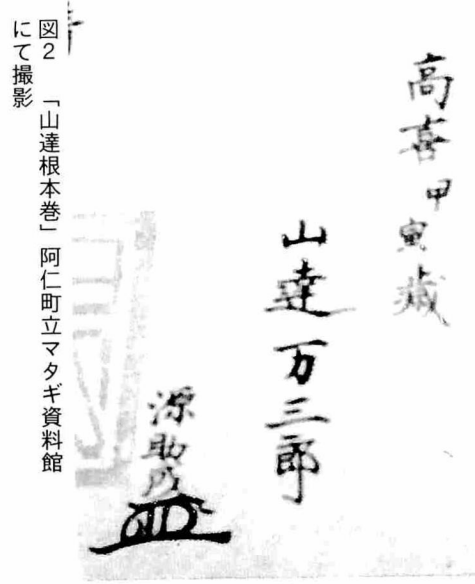 高喜甲寅歳
山達万三郎
源助
図2 「山達根本巻」阿仁町立マタギ資料館
にて撮影